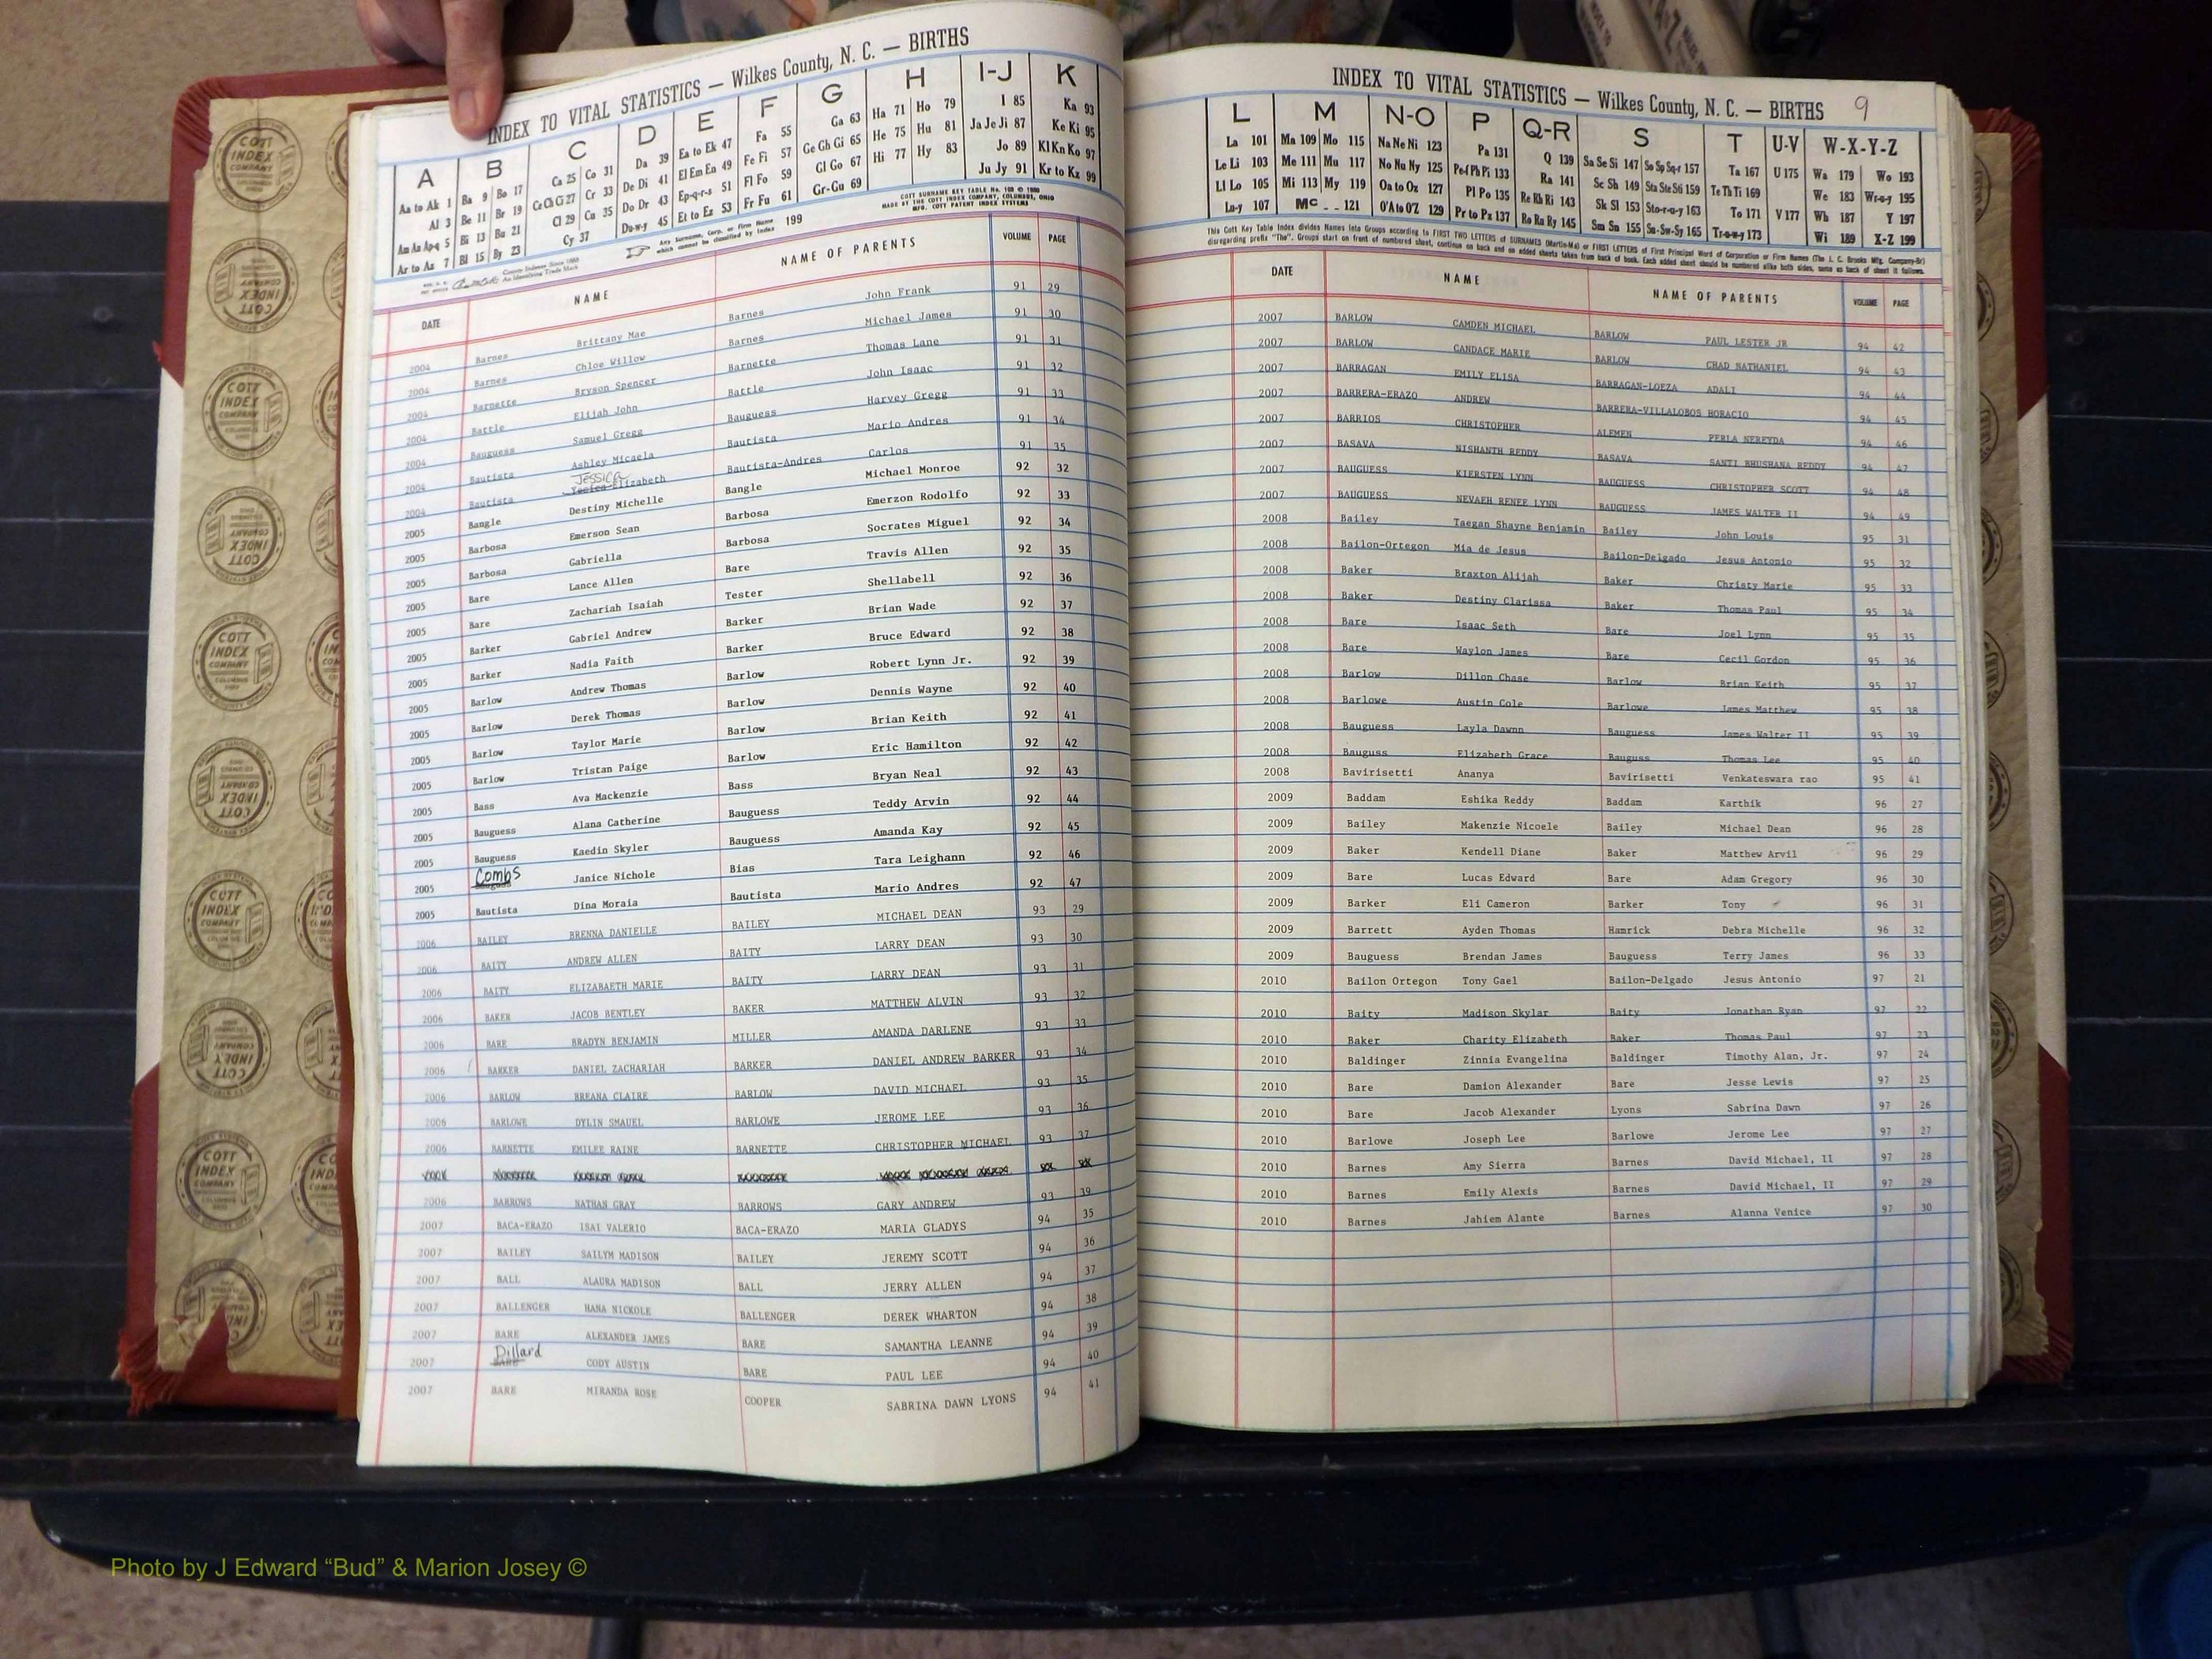 INDEX TO VITAL STATISTICS — Wilkes County, N. C. — BIRTHS
A B C D E F G H I-J K
Aa to Ak 1 Ba 9 Bo 17 Ca 25 Co 31 Da 39 Ea to Ek 47 Fa 55 Ga 63 Ha 71 Ho 79 I 85 Ka 93
Al 3 Be 11 Br 19 Ce Ch G 27 Cr 33 De Di 41 El Em En 49 Fe Fi 57 Ge Gh Gi 65 He 75 Hu 81 Ja Je Ji 87 Ke Ki 95
Am An Ap-q 5 Bi 13 Bu 21 Cl 29 Cu 35 Do Dr 43 Ep-q-r-s 51 Fl Fo 59 Gl Go 67 Hi 77 Hy 83 Jo 89 Kl Kn Ko 97
Ar to Az 7 Bl 15 By 23 Cy 37 Du-w-y 45 Et to Ez 53 Fr Fu 61 Gr-Gu 69 Ju Jy 91 Kr to Kz 99
Any Surname, Corp. or Firm Name which cannot be classified by Index 199
COTT SURNAME KEY TABLE
MADE BY THE COTT INDEX COMPANY, COLUMBUS, OHIO
MFG. COTT PATENT INDEX SYSTEMS
DATE NAME NAME OF PARENTS VOLUME PAGE
2004 Barnes Brittany Mae Barnes John Frank 91 29
2004 Barnes Chloe Willow Barnes Michael James 91 30
2004 Barnette Bryson Spencer Barnette Thomas Lane 91 31
2004 Battle Elijah John Battle John Isaac 91 32
2004 Bauguess Samuel Gregg Bauguess Harvey Gregg 91 33
2004 Bautista Ashley Micaela Bautista Mario Andres 91 34
JESSICA
2004 Bautista Yesica Elizabeth Bautista-Andres Carlos 91 35
2005 Bangle Destiny Michelle Bangle Michael Monroe 92 32
2005 Barbosa Emerson Sean Barbosa Emerzon Rodolfo 92 33
2005 Barbosa Gabriella Barbosa Socrates Miguel 92 34
2005 Bare Lance Allen Bare Travis Allen 92 35
2005 Bare Zachariah Isaiah Tester Shellabell 92 36
2005 Barker Gabriel Andrew Barker Brian Wade 92 37
2005 Barker Nadia Faith Barker Bruce Edward 92 38
2005 Barlow Andrew Thomas Barlow Robert Lynn Jr. 92 39
2005 Barlow Derek Thomas Barlow Dennis Wayne 92 40
2005 Barlow Taylor Marie Barlow Brian Keith 92 41
2005 Barlow Tristan Paige Barlow Eric Hamilton 92 42
2005 Bass Ava Mackenzie Bass Bryan Neal 92 43
2005 Bauguess Alana Catherine Bauguess Teddy Arvin 92 44
2005 Bauguess Kaedin Skyler Bauguess Amanda Kay 92 45
Combs
2005 Bauguess Janice Nichole Bias Tara Leighann 92 46
2005 Bautista Dina Moraia Bautista Mario Andres 92 47
2006 BAILEY BRENNA DANIELLE BAILEY MICHAEL DEAN 93 29
2006 BAITY ANDREW ALLEN BAITY LARRY DEAN 93 30
2006 BAITY ELIZABAETH MARIE BAITY LARRY DEAN 93 31
2006 BAKER JACOB BENTLEY BAKER MATTHEW ALVIN 93 32
2006 BARE BRADYN BENJAMIN MILLER AMANDA DARLENE 93 33
2006 BARKER DANIEL ZACHARIAH BARKER DANIEL ANDREW BARKER 93 34
2006 BARLOW BREANA CLAIRE BARLOW DAVID MICHAEL 93 35
2006 BARLOWE DYLIN SMAUEL BARLOWE JEROME LEE 93 36
2006 BARNETTE EMILEE RAINE BARNETTE CHRISTOPHER MICHAEL 93 37
2006 BARROWS NATHAN GRAY BARROWS GARY ANDREW 93 39
2007 BACA-ERAZO ISAI VALERIO BACA-ERAZO MARIA GLADYS 94 35
2007 BAILEY SAILYM MADISON BAILEY JEREMY SCOTT 94 36
2007 BALL ALAURA MADISON BALL JERRY ALLEN 94 37
2007 BALLENGER HANA NICKOLE BALLENGER DEREK WHARTON 94 38
2007 BARE ALEXANDER JAMES BARE SAMANTHA LEANNE 94 39
Dillard
2007 BARE CODY AUSTIN BARE PAUL LEE 94 40
2007 BARE MIRANDA ROSE COOPER SABRINA DAWN LYONS 94 41
INDEX TO VITAL STATISTICS — Wilkes County, N. C. — BIRTHS 9
L M N-O P Q-R S T U-V W-X-Y-Z
La 101 Ma 109 Mo 115 Na Ne Ni 123 Pa 131 Q 139 Sa Se Si 147 So Sp Sq-r 157 Ta 167 U 175 Wa 179 Wo 193
Le Li 103 Me 111 Mu 117 No Nu Ny 125 Pe-f Ph Pi 133 Ra 141 Sc Sh 149 Sta Ste Sti 159 Te Th Ti 169 We 183 Wr-u-y 195
Ll Lo 105 Mi 113 My 119 Oa to Oz 127 Pl Po 135 Re Rh Ri 143 Sk Sl 153 Sto-r-u-y 163 To 171 V 177 Wh 187 Y 197
Lu-y 107 Mc 121 O'A to O'Z 129 Pr to Pz 137 Ro Ru Ry 145 Sm Sn 155 Su-Sw-Sy 165 Tr-u-w-y 173 Wi 189 X-Z 199
This Cott Key Table Index divides Names into Groups according to FIRST TWO LETTERS of SURNAMES (Martin-Ma) or FIRST LETTERS of First Principal Word of Corporation or Firm Names (The J. C. Brooks Mfg. Company-Br)
disregarding prefix "The". Groups start on front of numbered sheet, continue on back and on added sheets taken from back of book. Each added sheet should be numbered alike both sides, same as back of sheet it follows.
DATE NAME NAME OF PARENTS VOLUME PAGE
2007 BARLOW CAMDEN MICHAEL BARLOW PAUL LESTER JR 94 42
2007 BARLOW CANDACE MARIE BARLOW CHAD NATHANIEL 94 43
2007 BARRAGAN EMILY ELISA BARRAGAN-LOEZA ADALI 94 44
2007 BARRERA-ERAZO ANDREW BARRERA-VILLALOBOS HORACIO 94 45
2007 BARRIOS CHRISTOPHER ALEMEN PERLA NEREYDA 94 46
2007 BASAVA NISHANTH REDDY BASAVA SANTI BHUSHANA REDDY 94 47
2007 BAUGUESS KIERSTEN LYNN BAUGUESS CHRISTOPHER SCOTT 94 48
2007 BAUGUESS NEVAEH RENEE LYNN BAUGUESS JAMES WALTER II 94 49
2008 Bailey Taegan Shayne Benjamin Bailey John Louis 95 31
2008 Bailon-Ortegon Mia de Jesus Bailon-Delgado Jesus Antonio 95 32
2008 Baker Braxton Alijah Baker Christy Marie 95 33
2008 Baker Destiny Clarissa Baker Thomas Paul 95 34
2008 Bare Isaac Seth Bare Joel Lynn 95 35
2008 Bare Waylon James Bare Cecil Gordon 95 36
2008 Barlow Dillon Chase Barlow Brian Keith 95 37
2008 Barlowe Austin Cole Barlowe James Matthew 95 38
2008 Bauguess Layla Dawnn Bauguess James Walter II 95 39
2008 Bauguss Elizabeth Grace Bauguss Thomas Lee 95 40
2008 Bavirisetti Ananya Bavirisetti Venkateswara rao 95 41
2009 Baddam Eshika Reddy Baddam Karthik 96 27
2009 Bailey Makenzie Nicoele Bailey Michael Dean 96 28
2009 Baker Kendell Diane Baker Matthew Arvil 96 29
2009 Bare Lucas Edward Bare Adam Gregory 96 30
2009 Barker Eli Cameron Barker Tony 96 31
2009 Barrett Ayden Thomas Hamrick Debra Michelle 96 32
2009 Bauguess Brendan James Bauguess Terry James 96 33
2010 Bailon Ortegon Tony Gael Bailon-Delgado Jesus Antonio 97 21
2010 Baity Madison Skylar Baity Jonathan Ryan 97 22
2010 Baker Charity Elizabeth Baker Thomas Paul 97 23
2010 Baldinger Zinnia Evangelina Baldinger Timothy Alan, Jr. 97 24
2010 Bare Damion Alexander Bare Jesse Lewis 97 25
2010 Bare Jacob Alexander Lyons Sabrina Dawn 97 26
2010 Barlowe Joseph Lee Barlowe Jerome Lee 97 27
2010 Barnes Amy Sierra Barnes David Michael, II 97 28
2010 Barnes Emily Alexis Barnes David Michael, II 97 29
2010 Barnes Jahiem Alante Barnes Alanna Venice 97 30
Photo by J Edward “Bud” & Marion Josey ©